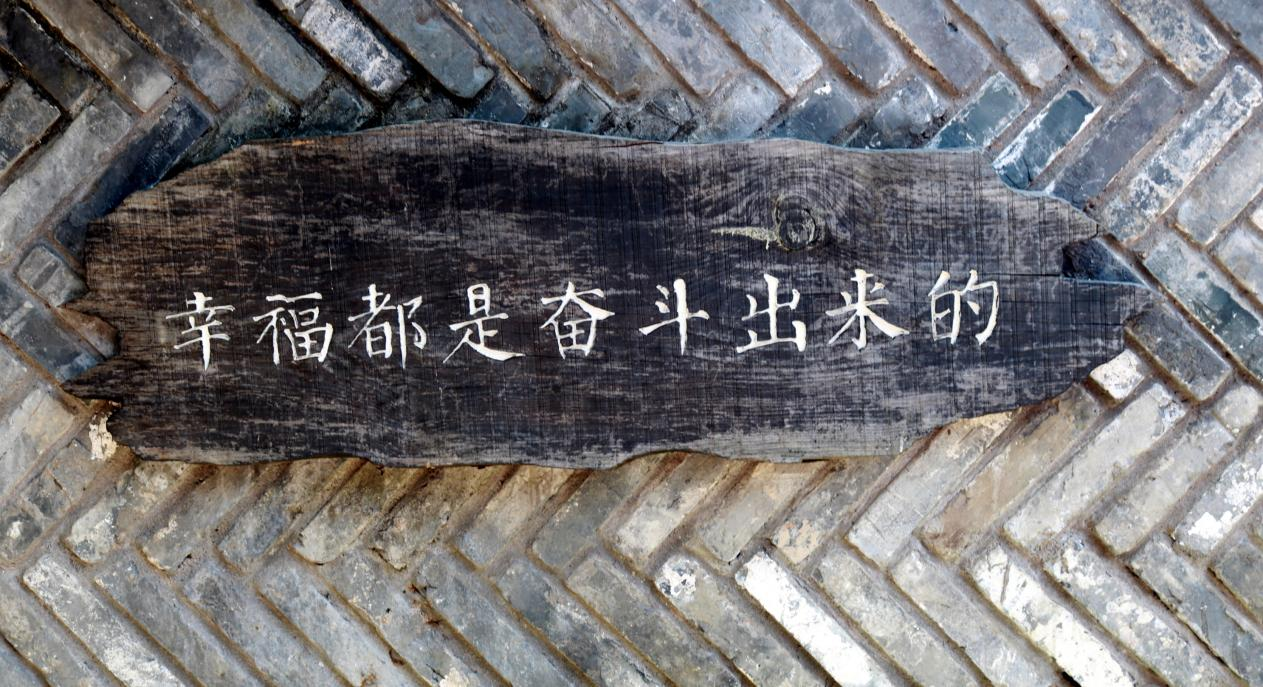 幸福都是奋斗出来的